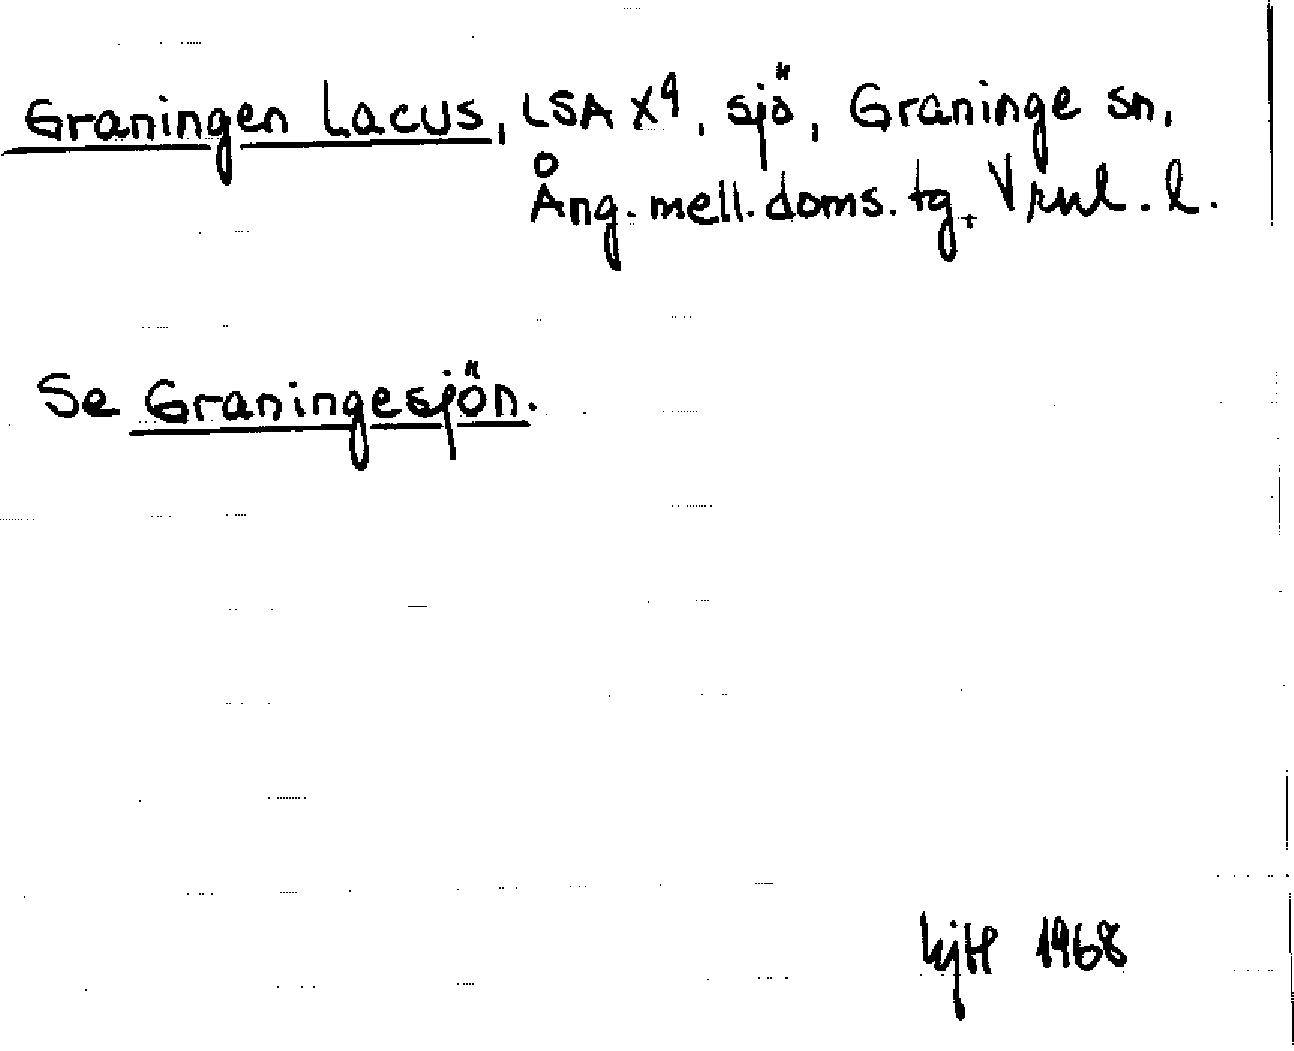 Graningen Lacus, LSA X9, sjö, Graninge sn,
Ång. mell. doms. tg. Vrnl. l.
Se Graningesjön.
1968